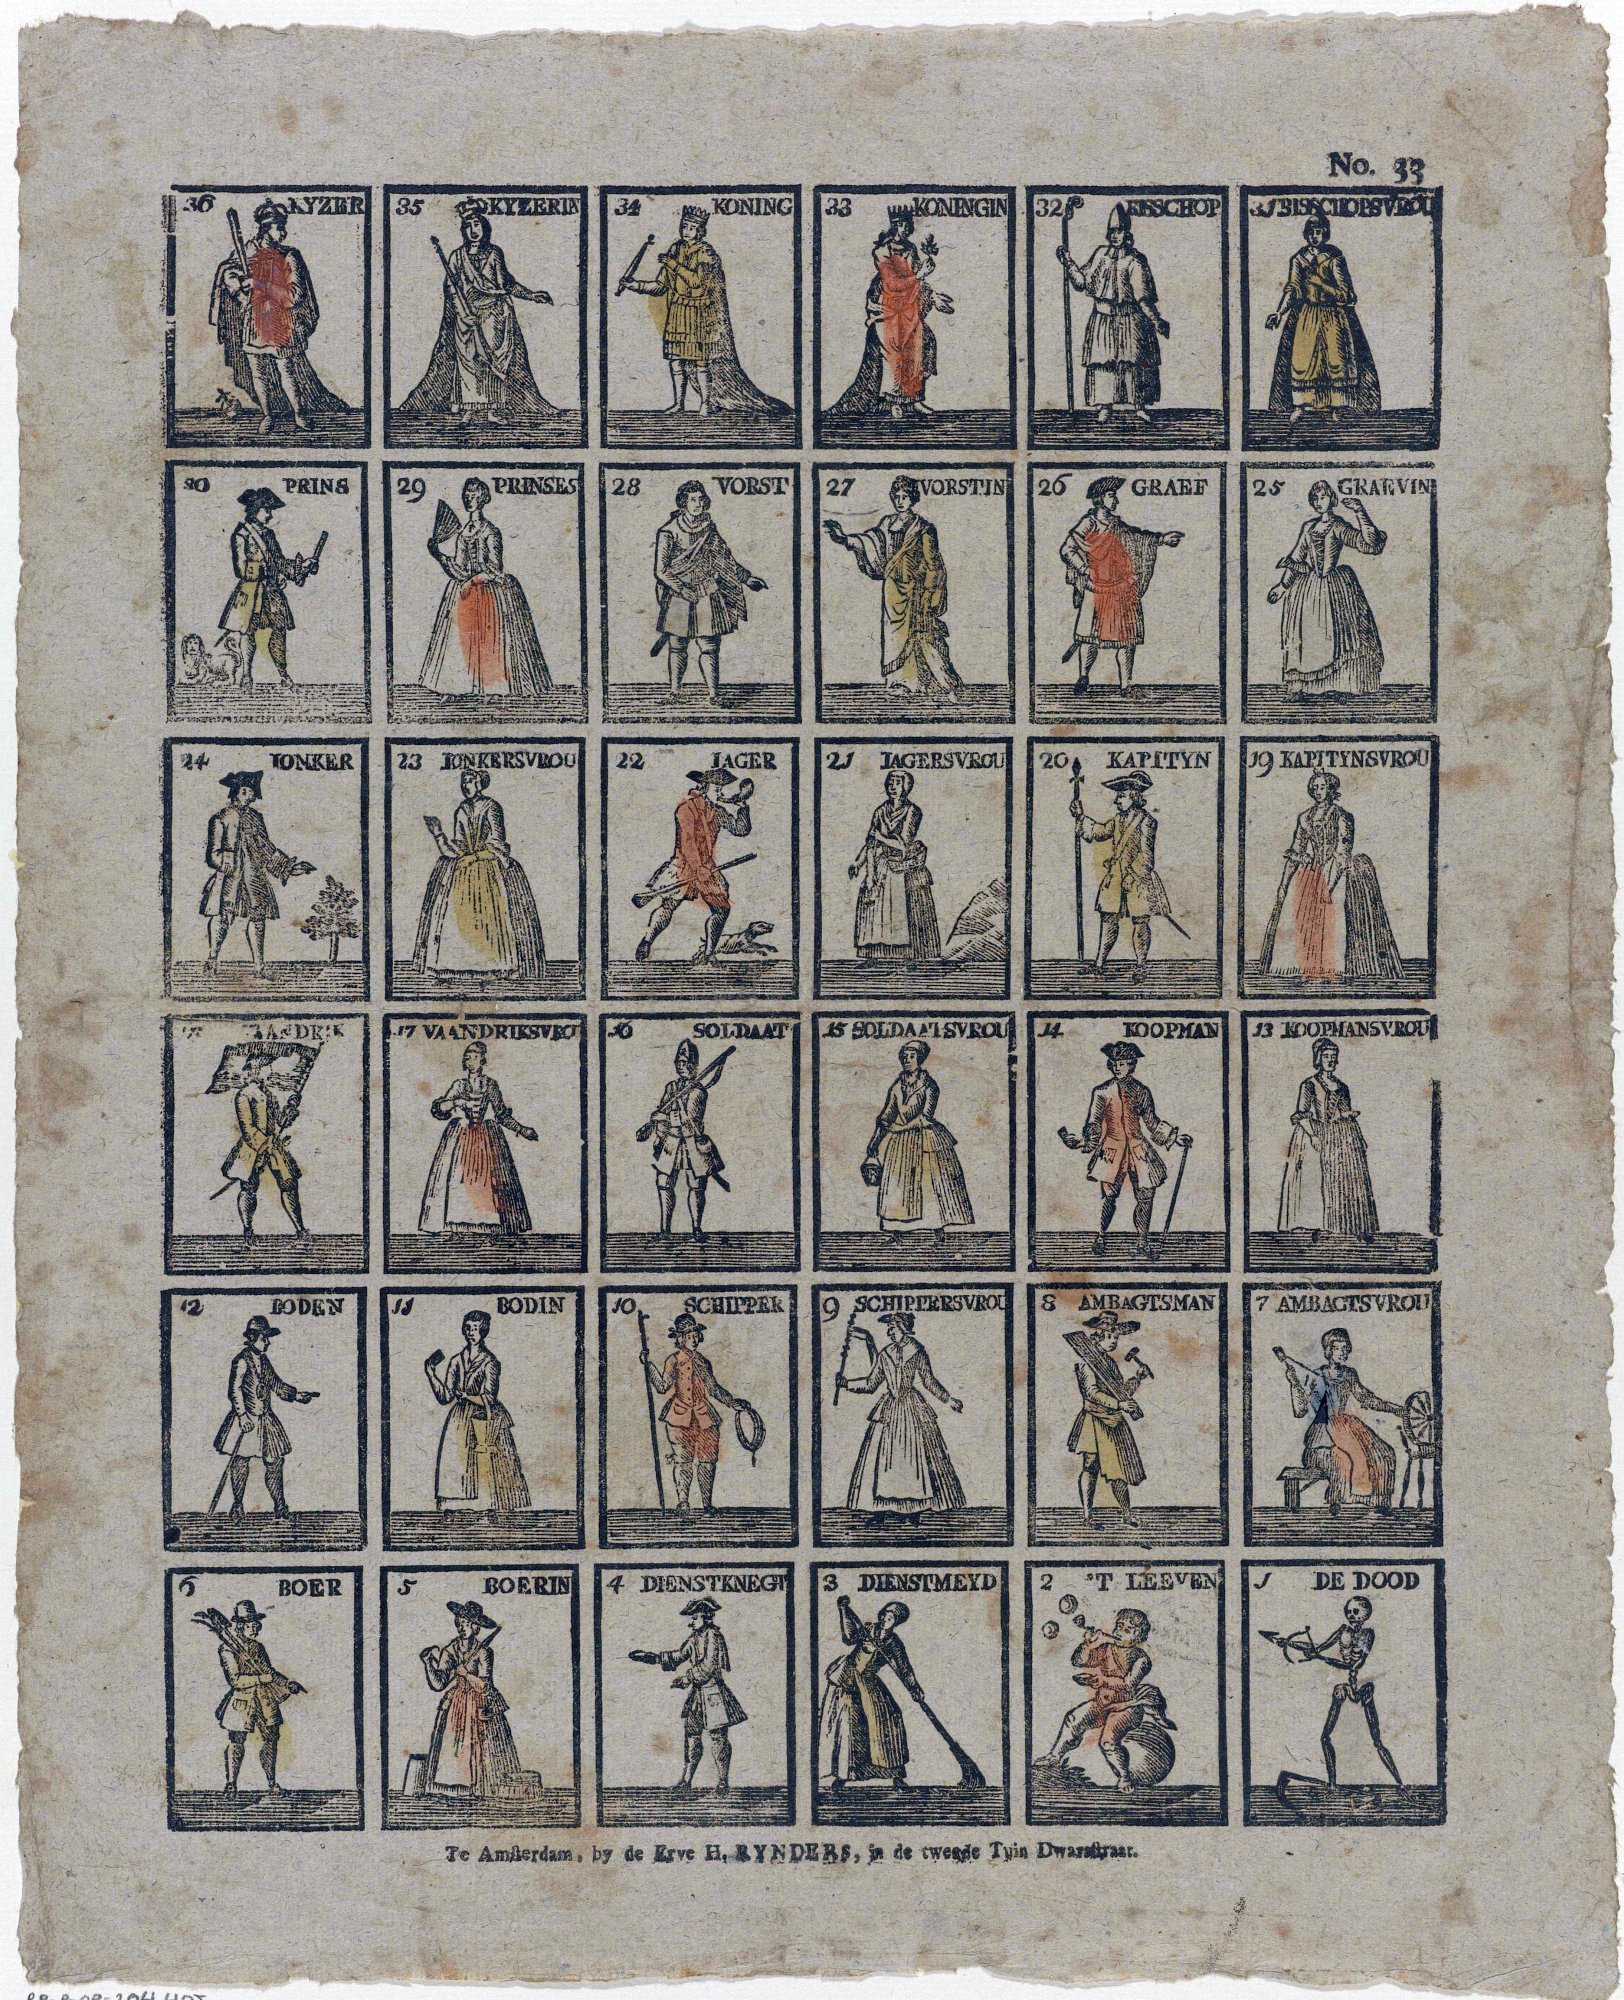 No. 33
36 KYZER
35 KYZERIN
34 KONING
33 KONINGIN
32 BISSCHOP
31 BISSCHOPSVROU
30 PRINS
29 PRINSES
28 VORST
27 VORSTIN
26 GRAEF
25 GRAEVIN
24 IONKER
23 IONKERSVROU
22 IAGER
21 IAGERSVROU
20 KAPITYN
19 KAPITYNSVROU
VAANDRIK
17 VAANDRIKSVRO
16 SOLDAAT
15 SOLDAATSVROU
14 KOOPMAN
13 KOOPMANSVROU
12 BODEN
11 BODIN
10 SCHIPPER
9 SCHIPPERSVROU
8 AMBAGTSMAN
7 AMBAGTSVROU
6 BOER
5 BOERIN
4 DIENSTKNEGT
3 DIENSTMEYD
2 'T LEEVEN
1 DE DOOD
Te Amsterdam, by de Erve H. RYNDERS, in de tweede Tuin Dwarsstraat.